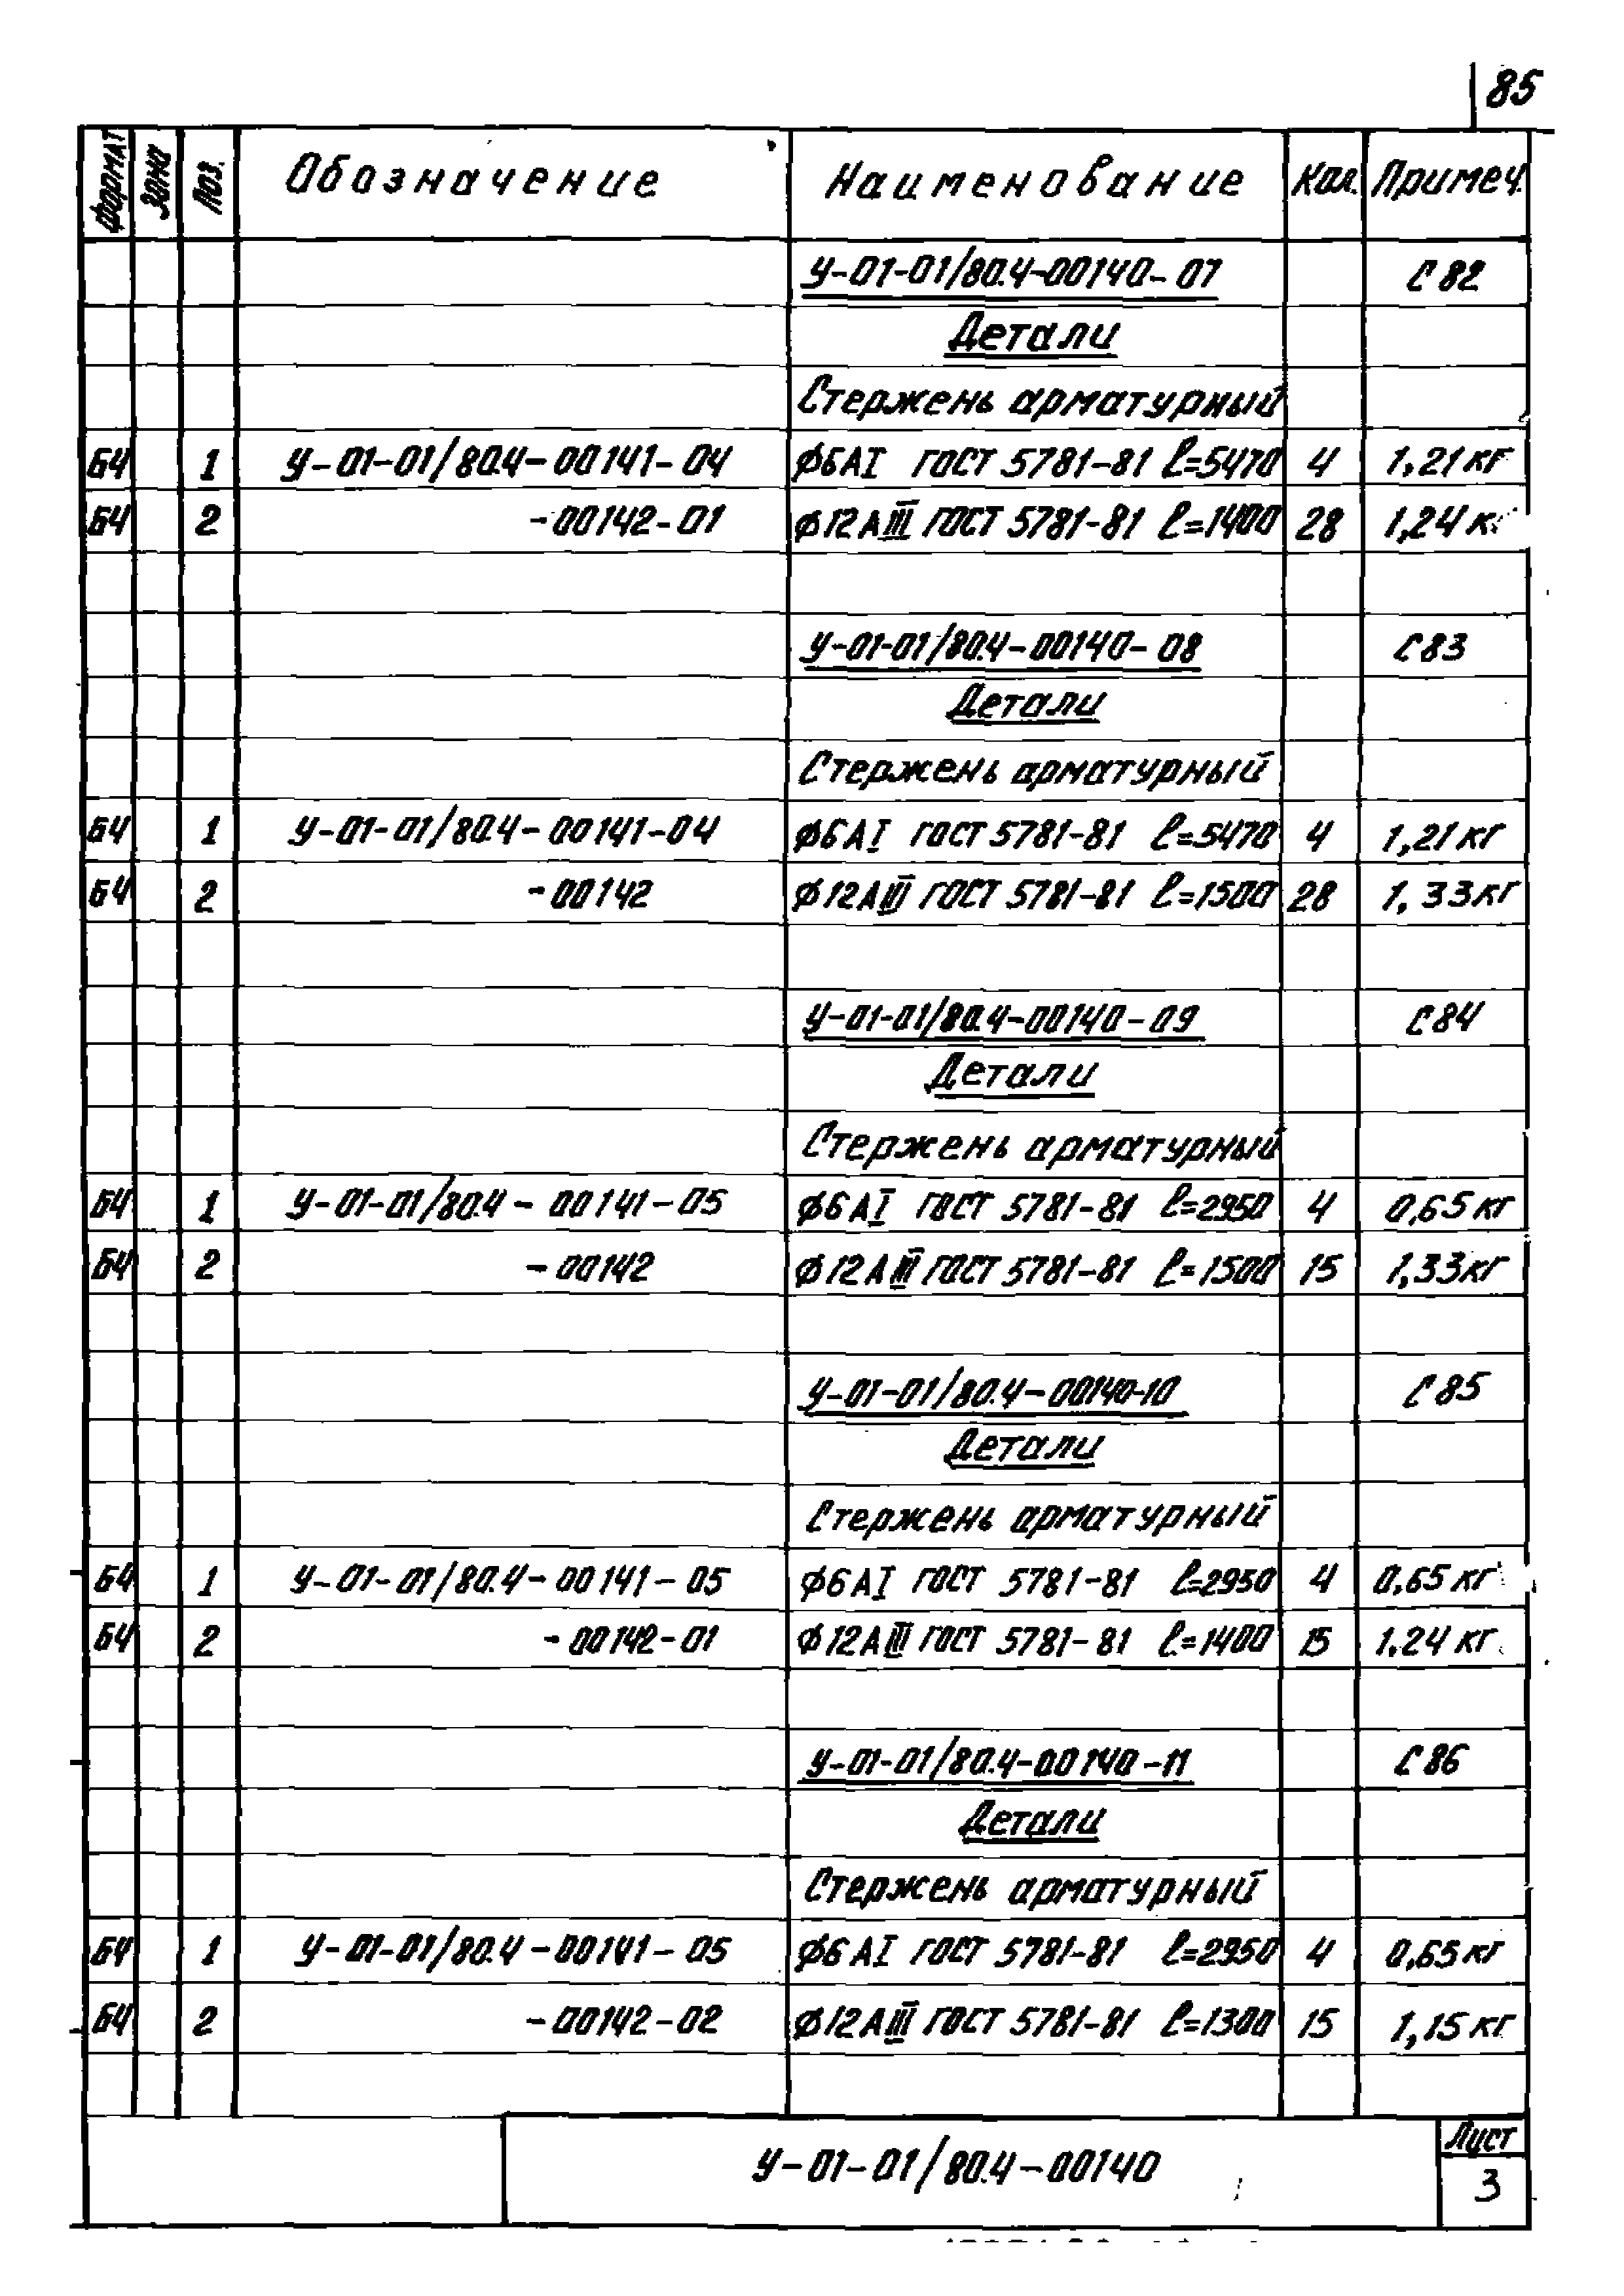 85
Формат Зона Поз. Обозначение Наименование Кол. Примеч.
У-01-01/80.4-00140-07 С 82
Детали
Стержень арматурный
Б4 1 У-01-01/80.4-00141-04 ϕ6АI ГОСТ 5781-81 ℓ=5470 4 1,21 кг
Б4 2 -00142-01 ϕ12АIII ГОСТ 5781-81 ℓ=1400 28 1,24 к
У-01-01/80.4-00140-08 С 83
Детали
Стержень арматурный
Б4 1 У-01-01/80.4-00141-04 ϕ6АI ГОСТ 5781-81 ℓ=5470 4 1,21 кг
Б4 2 -00142 ϕ12АIII ГОСТ 5781-81 ℓ=1500 28 1,33 кг
У-01-01/80.4-00140-09 С 84
Детали
Стержень арматурный
Б4 1 У-01-01/80.4-00141-05 ϕ6АI ГОСТ 5781-81 ℓ=2950 4 0,65 кг
Б4 2 -00142 ϕ12АIII ГОСТ 5781-81 ℓ=1500 15 1,33 кг
У-01-01/80.4-00140-10 С 85
Детали
Стержень арматурный
Б4 1 У-01-01/80.4-00141-05 ϕ6АI ГОСТ 5781-81 ℓ=2950 4 0,65 кг
Б4 2 -00142-01 ϕ12АIII ГОСТ 5781-81 ℓ=1400 15 1.24 кг
У-01-01/80.4-00140-11 С 86
Детали
Стержень арматурный
Б4 1 У-01-01/80.4-00141-05 ϕ6АI ГОСТ 5781-81 ℓ=2950 4 0,65 кг
Б4 2 -00142-02 ϕ12АIII ГОСТ 5781-81 ℓ=1300 15 1,15 кг
У-01-01/80.4-00140
Лист
3